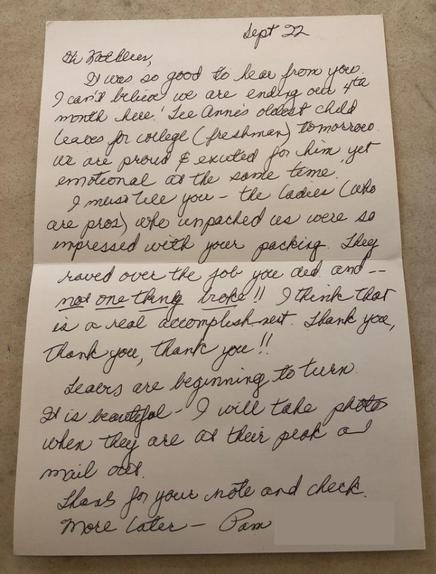 Sept 22
Hi Kathleen,
It was so good to hear from you.
I can't believe we are ending our 4th
month here! Lee Anne's oldest child
leaves for college (freshman) tomorrow.
We are proud & excited for him yet
emotional at the same time.
I must tell you - the ladies (who
are pros) who unpacked us were so
impressed with your packing. They
raved over the job you did and --
not one thing broke!! I think that
is a real accomplishment. Thank you,
thank you, thank you!!
Leaves are beginning to turn.
It is beautiful - I will take photos
when they are at their peak and
mail out.
Thanks for your note and check.
More later - Pam